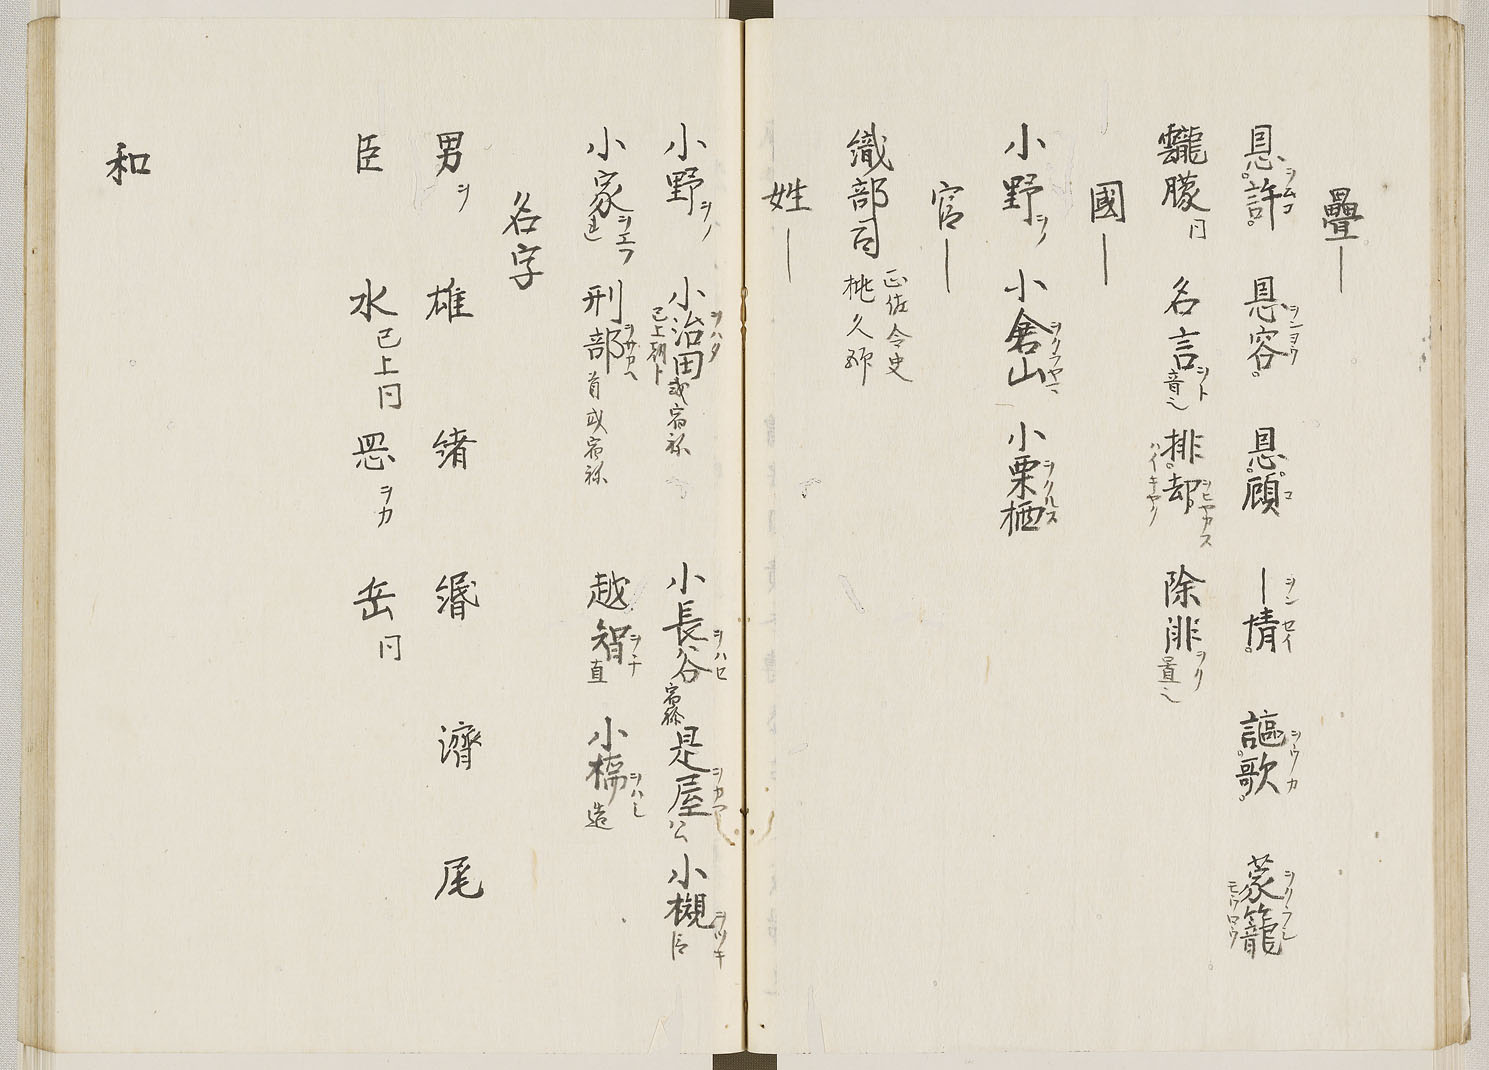 疊—
恩許ヲムコ 恩容ヲンヨウ 恩顧コ —情ヲンセイ 謳歌ヲウカ 蒙籠ヲクラシモウロウ
靉朦同 名言ヲト音之 排却ヲヒヤカスハイキヤク 除誹ヲク置之
國—
小野ヲノ 小倉山ヲクラヤマ 小栗栖ヲクルス
官—
織部司 正佑令史 挑久師
姓—
小野ヲノ 小治田ヲハタ或宿祢已上朝卜 小長谷ヲハセ宿祢 是屋ヲカヤ公 小槻ヲツキ
小家ヲエフ連 刑部ヲサカヘ首或宿祢 越智ヲチ直 小橋ヲハシ造
名字
男ヲ 雄 緒 綬 濟 尾
臣 水已上同 恩ヲカ 岳同
和